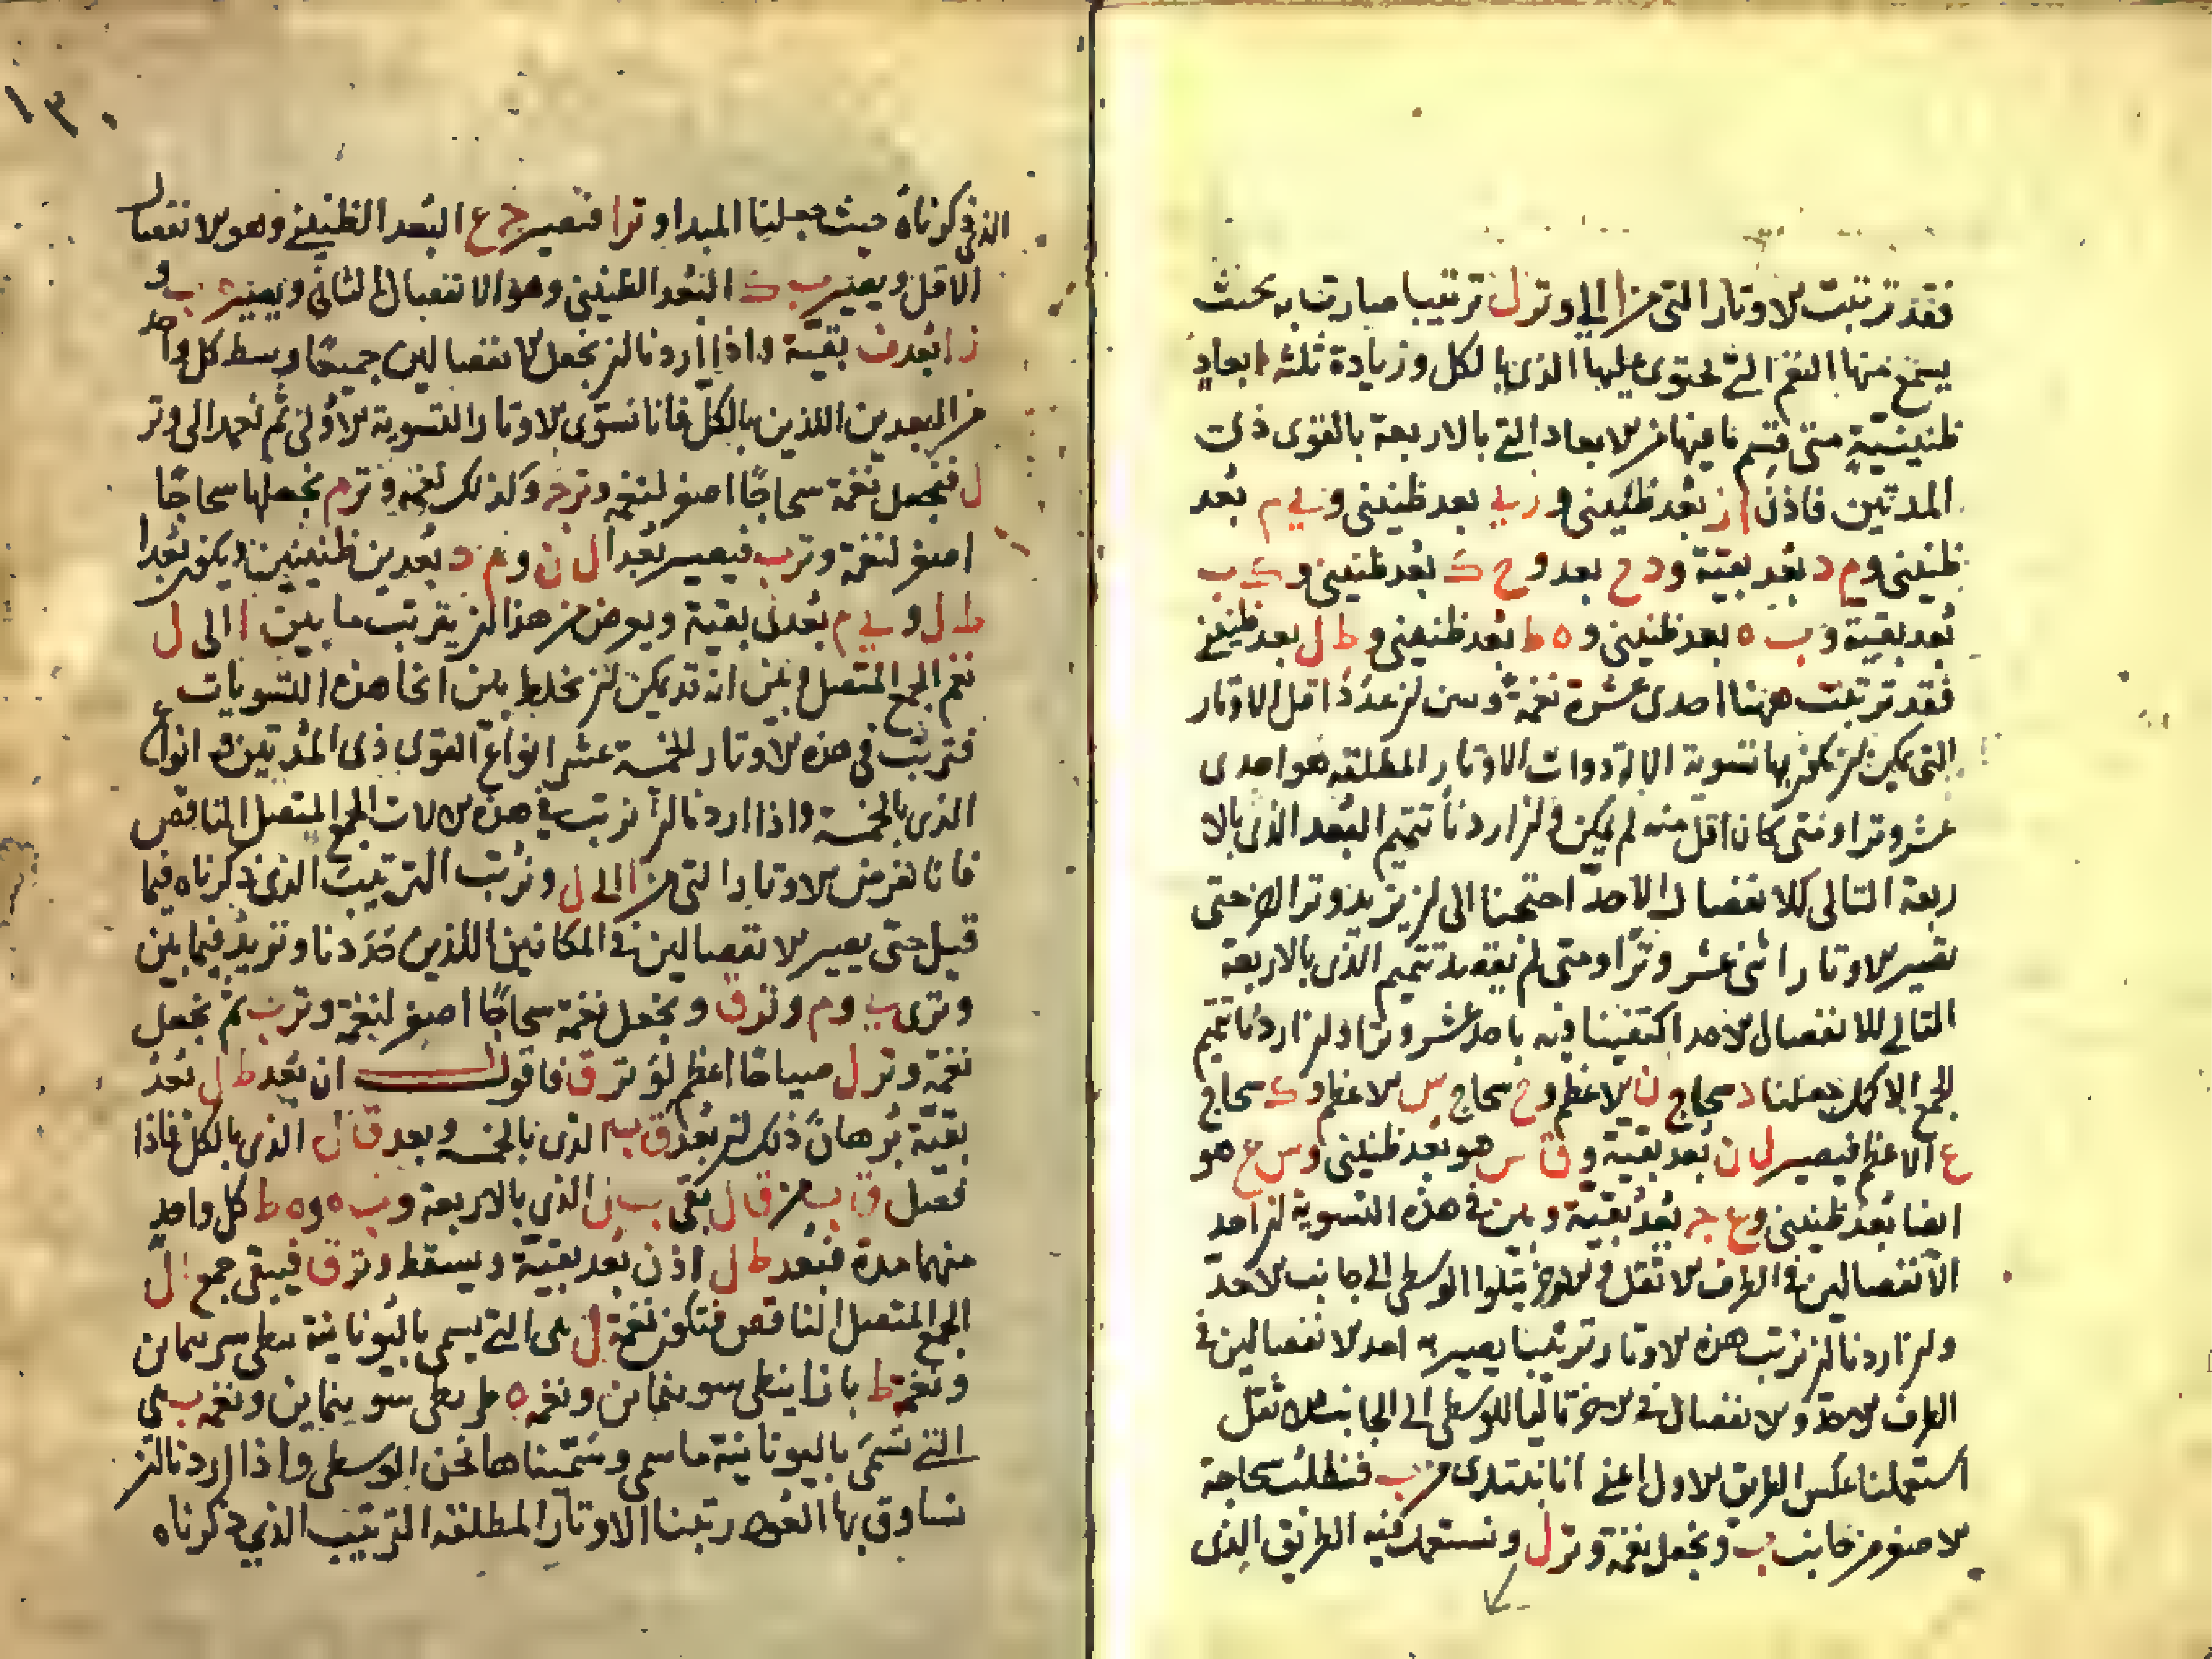 فقد ترتبت الاوتار التى من ا الى وتر ل ترتيبا صارت به بحيث
يسمع منها النغم التى يحتوى عليها الذى بالكل وزيادة ثلثه ابعاد
طنينيّةٍ متى قسم ما فيها من الابعاد التى بالاربعة بالقوى ذى
المدتين فاذن ا ز بُعد طنينى و ز ى بعد طنينى و ى م بُعد
طنينى و م د بُعد بقية و د ح بعد و ح ك بُعد طنينى و ك ب
بُعد بقية و ب ه بعد طنينى و ه ط بُعد طنينى و ط ل بعد طنينى
فقد ترتبت ههنا احدى عشرة نغمة وبين ان عدد اقل الاوتار
التى يمكن ان يكون بها تسوية الالة ذوات الاوتار المطلقه هو احدى
عشر وترا ومتى كان اقل منه لم يمكن وان اردنا تتميم البُعد الذى بالا
ربعة التالى للانفصال الاحدّ احتجنا الى ان نزيد وترا اخر حتى
تصير الاوتار اثنى عشر وترًا ومتى لم نقصد تتميم الذى بالاربعة
التالى للانفصال الاحد اكتفينا فيه باحد عشر وترًا وان اردنا تتميم
الجمع الاكمل جعلنا د سحاج ن الاعظم و ح سحاج س الاعظم و ك سحاج
ع الاعظم فيصير ل ن بُعد بقية و ن س هو بُعد طنينى و س ع هو
ايضا بُعد طنينى و ع ج بُعد بقيّة وبين فى هذه التسوية ان احد
الانفصالين فى الطرف الاثقل والاخر يتلوا الوسطى الى جانب الاحدّ
وان اردنا ان نرتب هذه الاوتار ترتيبا يصير به احد الانفصالين فى
الطرف الاحدّ والانفصال الاخر تاليا للوسطى الى الجانب الاثقل
استعملنا عكس الطريق الاول اعنى انا نبتدى من ب فنطلب سحاجة
الاصغر من جانب ب ونجعل نغمة وتر ل ونستعمل فيه الطريق الذى
الذى ذكرناه حيث جعلنا المبدا وتر ا فيصير ج ع البُعد الطنينى وهو الانفصال
الاقل ويصير ب ك البُعد الطنينى وهو الانفصال الثانى ويصير ب و
ز ا بُعدى بقيّة واذا اردنا ان نجعل الانفصالين جميعًا وسط كل واحد
من البعدين اللذين بالكلّ فانا نسوّى الاوتار التسوية الاولى ثم نعمد الى وتر
ل فنجعل نغمة سحاجًا اصغر لنغمه وتر ج وكذلك نغمة وتر م نجعلها سحاجًا
اصغر لنغمة وتر ب فيصير بُعدا ل ن و م د بُعدين طنينيين ويكون بُعدا
ط ل و ى م بُعدى بقية ويعرض من هذا ان يترتب ما بين ا الى ل
نغم الجمع المتصل وبيّن انه قد يمكن ان نخلط بين انحا هذه التسويات
فترتب فى هذه الاوتار الخمسة عشر انواع القوى ذى المُدتين وانواع
الذى بالخمسة واذا اردنا ان نرتب فى هذه الالات الجمع المتصل الناقص
فانا نفرض الاوتار التى من ا الى ل ونرتب الترتيب الذى ذكرناه فيما
قبل حتى يصير الانفصالين فى المكانين اللذين حدّدنا ونزيد فيما بين
وترى ى و م وتر ق ونجعل نغمة سحاجًا اصغر لنغمة وتر ب ثم نجعل
نغمة وتر ل صياحًا اعظم لوتر ق فاقول ان بُعد ط ل بُعد
بقيّة بُرهانُ ذلك ان بُعد ق ب الذى بالخمسه وبعد ق ل الذى بالكل فاذا
فصل ق ب من ق ل بقى ب ل الذى بالاربعة و ب ه و ه ط كل واحدٍ
منهما مدة فبُعد ط ل اذن بُعد بقيّة ويسقط وتر ق فيبقى جمع ا ل
الجمع المتصل الناقص فتكون نغمة ل هى التى يسمى باليُونانية
ونغمة ط ونغمه ه ونغمه ب هى
التى تسمّى باليونانية ماسى وسمّيناها نحن الوسطى واذا اردنا ان
نساوق بها العود رتبنا الاوتار المطلقه الترتيب الذى ذكرناه
١٣٠